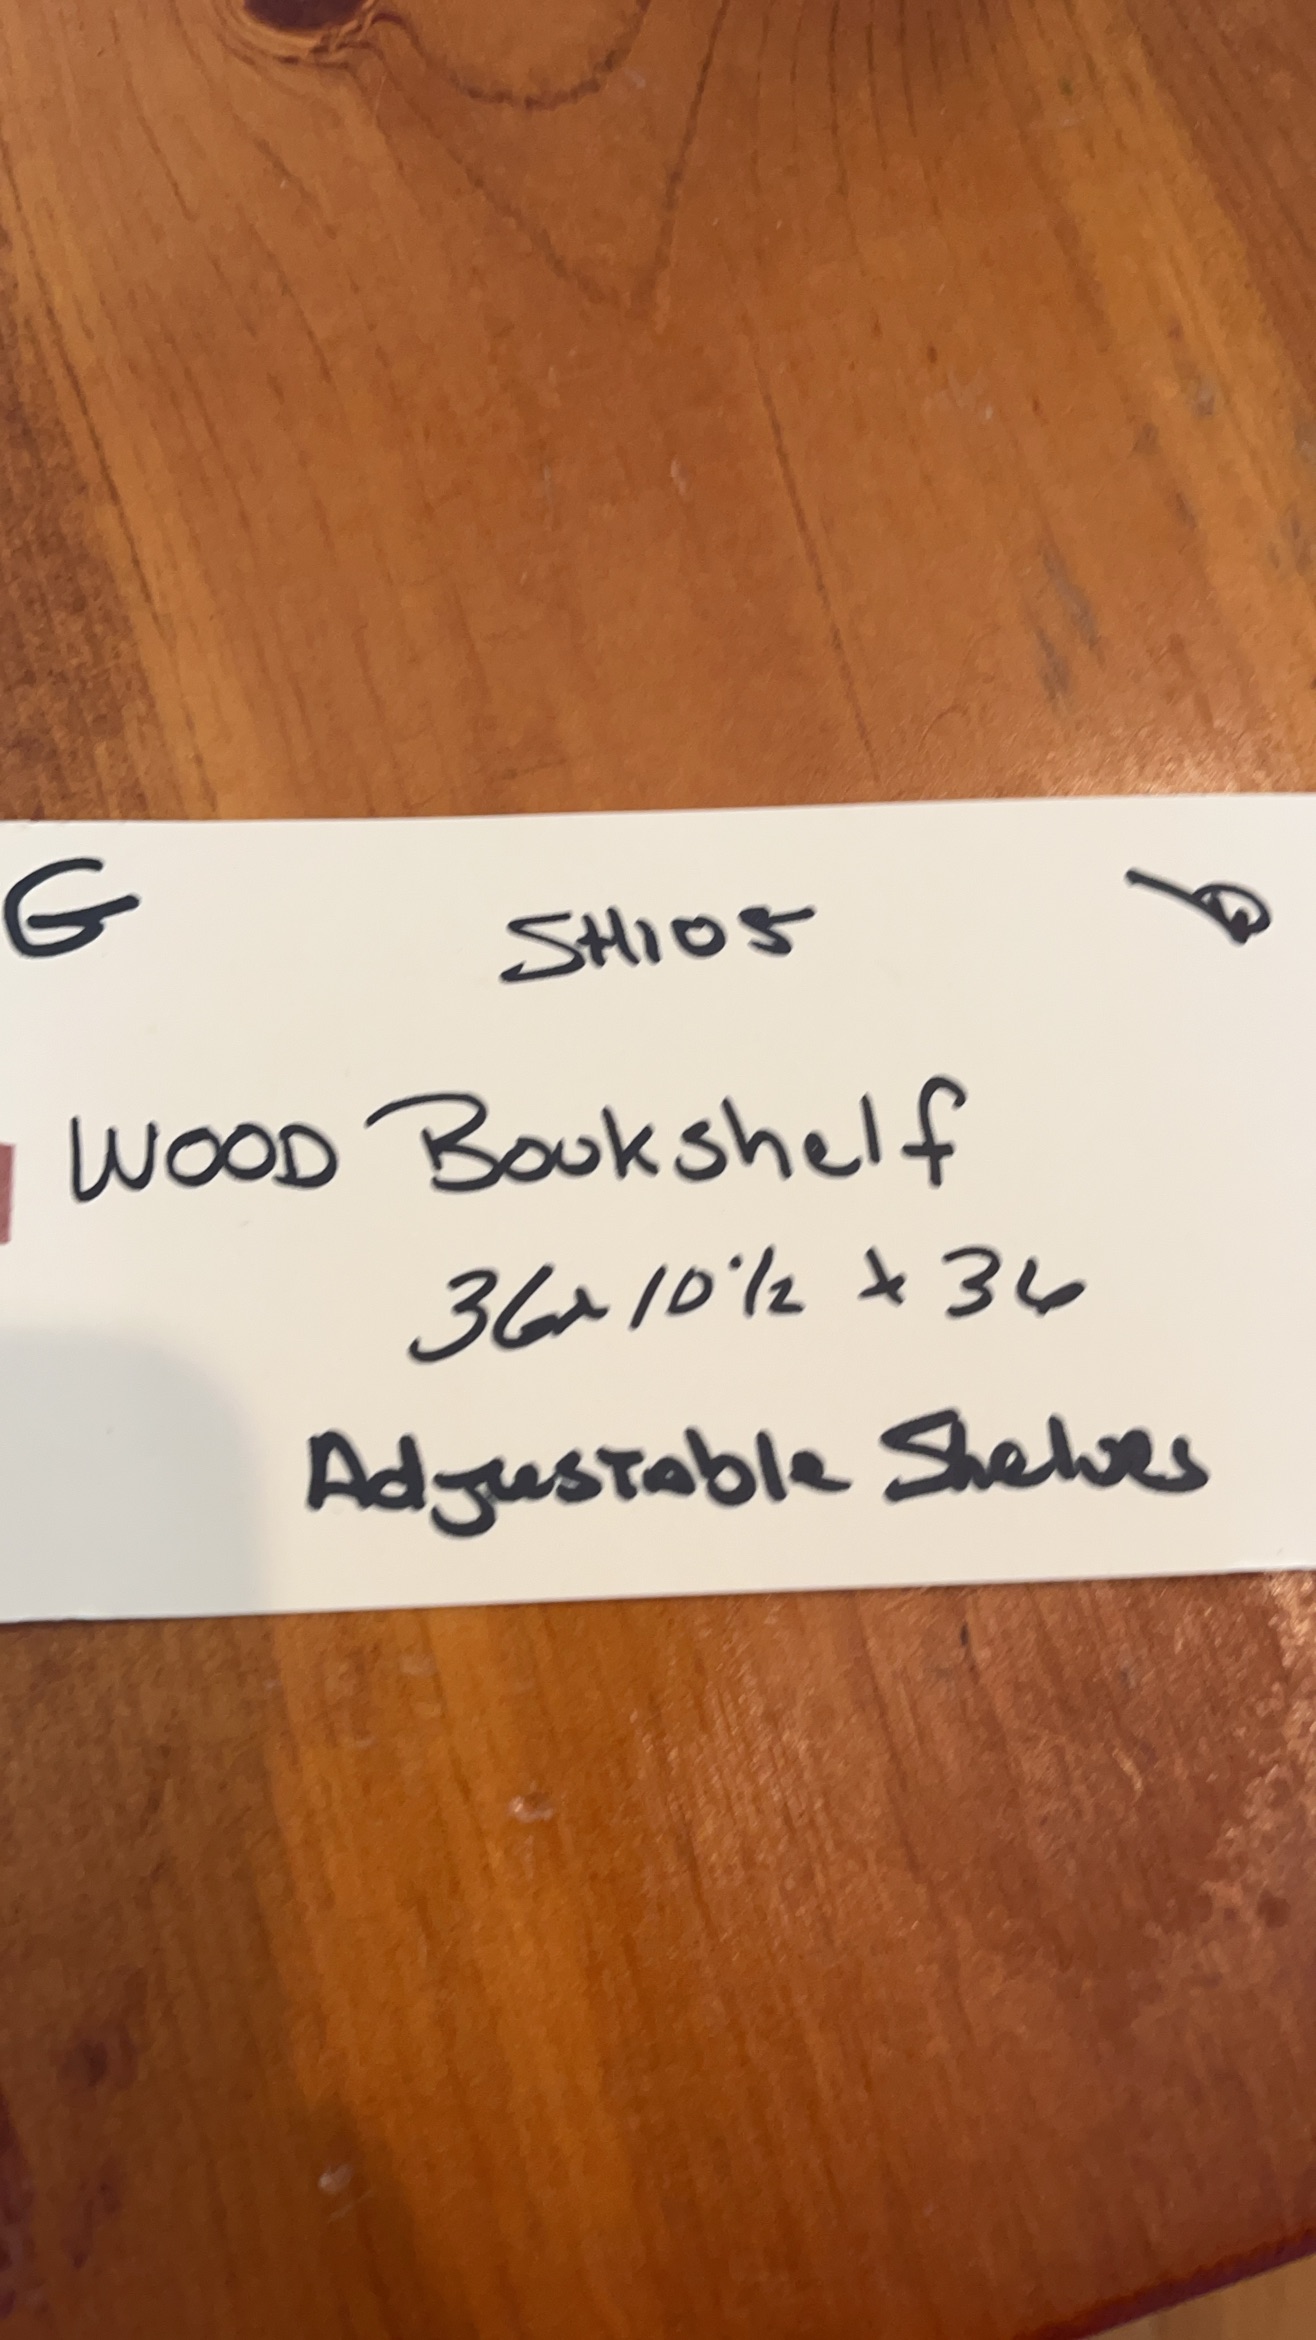 G SH105
WOOD Bookshelf
36x10 1/2 x 36
Adjustable Shelves